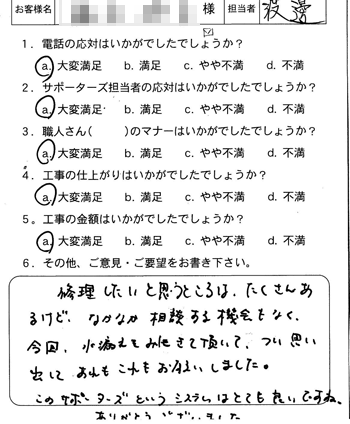 お客様名 様 担当者 渡邊
1．電話の応対はいかがでしたでしょうか？
a. 大変満足 b. 満足 c. やや不満 d. 不満
2．サポーターズ担当者の応対はいかがでしたでしょうか？
a. 大変満足 b. 満足 c. やや不満 d. 不満
3．職人さん( )のマナーはいかがでしたでしょうか？
a. 大変満足 b. 満足 c. やや不満 d. 不満
4．工事の仕上がりはいかがでしたでしょうか？
a. 大変満足 b. 満足 c. やや不満 d. 不満
5．工事の金額はいかがでしたでしょうか？
a. 大変満足 b. 満足 c. やや不満 d. 不満
6．その他、ご意見・ご要望をお書き下さい。
修理したいと思うところは、たくさんあ
るけど、なかなか相談する機会もなく、
今回、水漏れをみせて頂いて、つい思い
出してあれもこれもお伝えしました。
このサポーターズというシステムはとても良いですね。
ありがとうございました